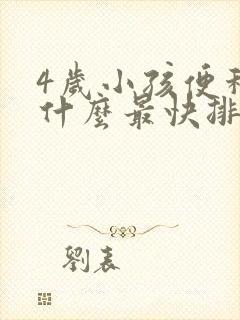 4歲小孩便秘
什麼最快排
劉表